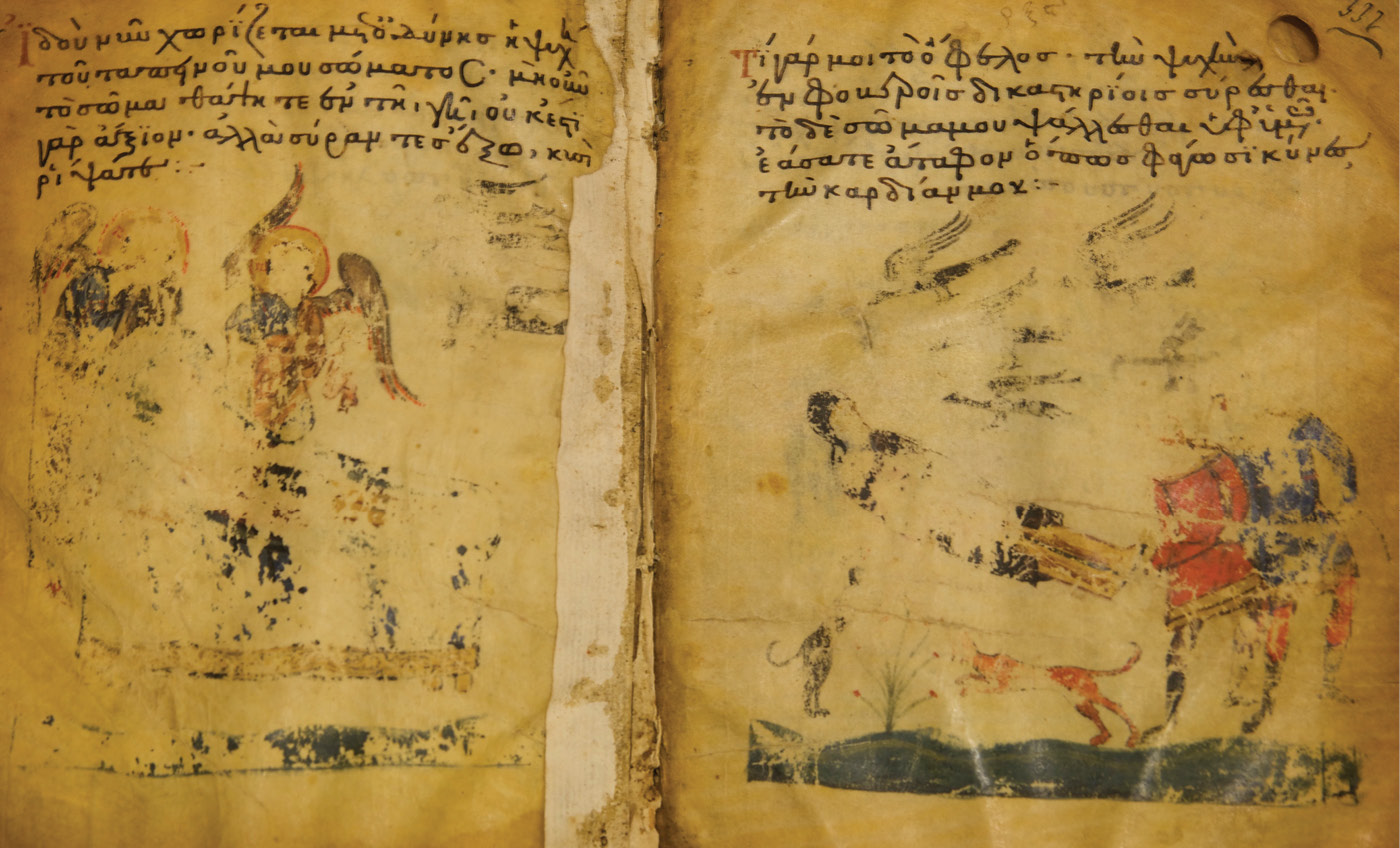 Ἰδοὺ νῦν χωρίζεται μετ ὀδύνης ἡ ψυχὴ
τοῦ ταπεινοῦ μου σώματος · μὴ οὖν
τὸ σῶμα θάπτητε ἐν τῇ γῇ οὐκ ἔστι
γὰρ ἄξιον · ἀλλὰ σύραντες ἔξω, κυσὶ
ρίψατε :
Τί γάρ μοι τὸ ὄφελος · τὴν ψυχὴν
ἐν φοβεροῖς δικαστηρίοις σύρεσθαι ·
τὸ δὲ σῶμα μου ψάλλεσθαι ὑφ' ὑμῶν ·
ἐάσατε ἄταφον ὅπως φάγωσι κύνες
τὴν καρδίαν μου :